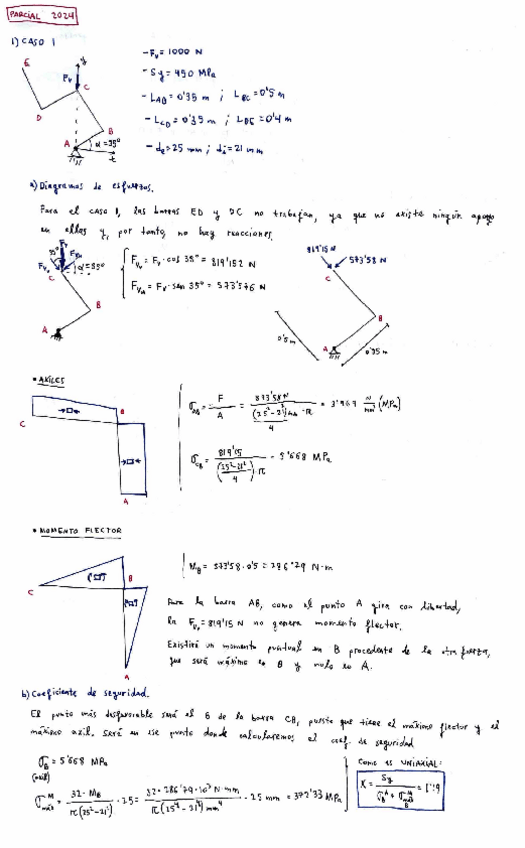 PARCIAL 2024
1) CASO 1
- Fv = 1000 N
- Sy = 450 MPa
- LAB = 0'35 m ; LBC = 0'5 m
- LCD = 0'35 m ; LDE = 0'4 m
- de = 25 mm ; di = 21 mm
E
Fv
C
D
B
A
α = 35°
a) Diagramas de esfuerzos.
Para el caso 1, las barras ED y DC no trabajan, ya que no existe ningún apoyo
en ellas y, por tanto, no hay reacciones.
Fv
35°
α = 35°
C
B
A
= Fv · cos 35° = 819'152 N
= Fv · sen 35° = 573'576 N
819'15 N
573'58 N
C
B
A
0'5 m
0'35 m
* AXILES
C
B
A
σAB = F / A = 573'58 N
σCB = 819'15 / ((25²-21²)/4) · π = 5'668 MPa
* MOMENTO FLECTOR
C
B
A
MB = 573'58 · 0'5 = 286'79 N·m
Para la barra AB, como el punto A gira con libertad,
la = 819'15 N no genera momento flector.
Existirá un momento puntual en B procedente de la otra fuerza,
que será máximo en B y nulo en A.
b) Coeficiente de seguridad.
El punto más desfavorable será el B de la barra CB, puesto que tiene el máximo flector y el
máximo axil. Será en ese punto donde calcularemos el coef. de seguridad
σB = 5'668 MPa
(axil)
32 · MB / π(25⁴-21⁴) · 25 = 32 · 286'79 · 10³ N·mm / π(25⁴-21⁴) mm⁴ · 25 mm = 372'33 MPa
Como es UNIAXIAL:
K = Sy = 1'19